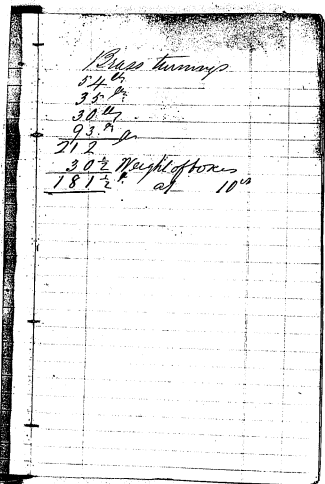 Brass turnings
54 lbs
35 lbs
30 lbs
93 lbs
212 lbs
30 1/2 Weight of boxes
181 1/2 at 10 cts